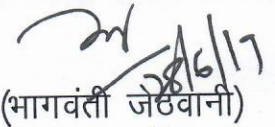 28/6/19
(भागवंती जेठवानी)